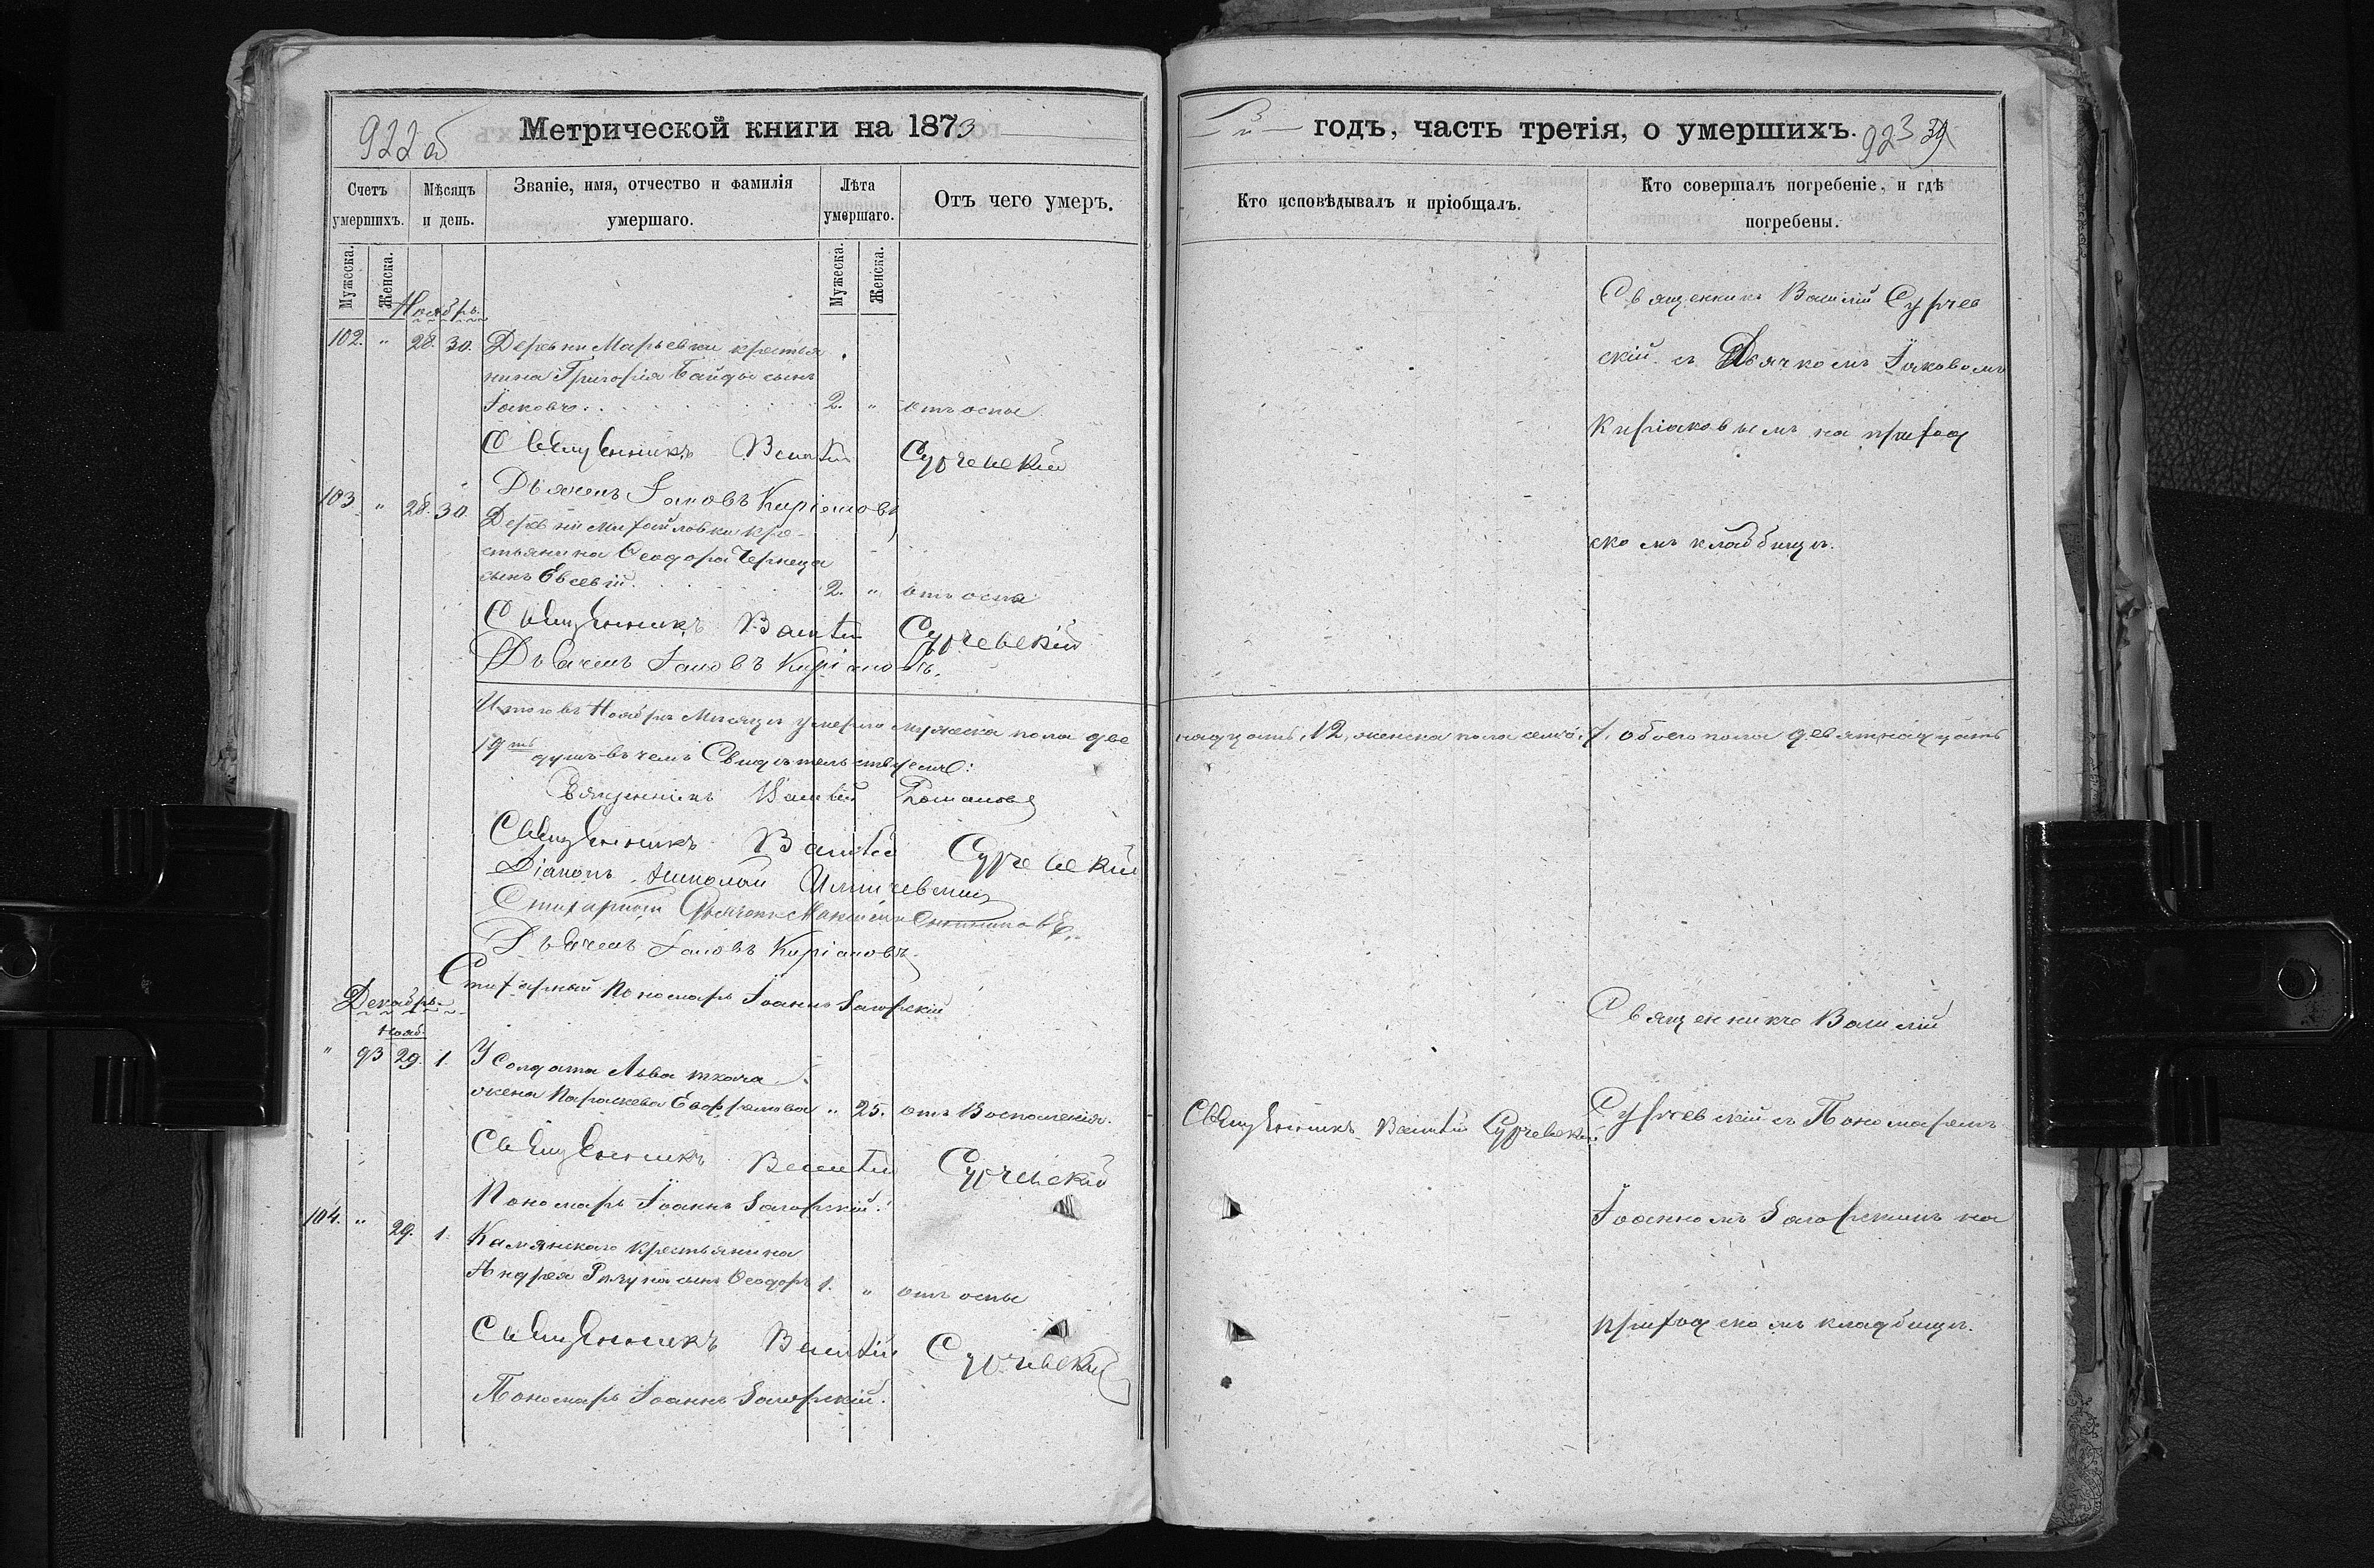 922 об
Метрической книги на 1873
Счетъ умершихъ.
Мѣсяцъ и день.
Званіе, имя, отчество и фамилія умершаго.
Лѣта умершаго.
Отъ чего умеръ.
Мужеска.
Женска.
Мужеска.
Женска.
Ноябрь
102. " 28. 30. Деревни Марьевки крестья
нина Григорія Байды сынъ
Іаковъ. 2. " отъ оспы
Священникъ Василій Сурчевскій
Дьячекъ Іаковъ Киріаковъ
103 " 28. 30. Деревни Михайловки кре-
стьянина Ѳеодора Чернеца
сынъ Евсевій. 2. " отъ оспы
Священникъ Василій Сурчевскій
Дьячекъ Іаковъ Киріаковъ.
Итого въ Ноябрѣ Мѣсяцѣ умерло мужеска пола две
19ть душъ въ чемъ Свидѣтельствуемъ:
Священникъ Василій Романовъ
Священникъ Василій Сурчевскій
Діаконъ Николай
Стихарный Дьячекъ Максимъ
Дьячекъ Іаковъ Киріаковъ
Стихарный Пономарь Іоаннъ Загорскій
Декабрь
Нояб.
" 93 29. 1. У Солдата Льва ткача
жена Параскева Ефремова " 25. отъ Воспаленія.
Священникъ Василій Сурчевскій
Пономарь Іоаннъ Загорскій.
104. " 29. 1. Камянскаго Крестьянина
Андрея сынъ Ѳеодоръ 1. " отъ оспы
Священникъ Василій Сурчевскій
Пономарь Іоаннъ Загорскій.
годъ, часть третія, о умершихъ.
923
Кто исповѣдывалъ и пріобщалъ.
Кто совершалъ погребеніе, и гдѣ погребены.
Священникъ Василій Сурчев
скій съ Дьячкомъ Іаковомъ
Киріаковымъ на приход
скомъ кладбищѣ.
надцать, 12, женска пола семь, 7, обоего пола девятнадцать
Священникъ Василій
Священникъ Василій Сурчевскій
Сурчевскій съ Пономаремъ
Іоанномъ Загорскимъ на
приходскомъ кладбищѣ.